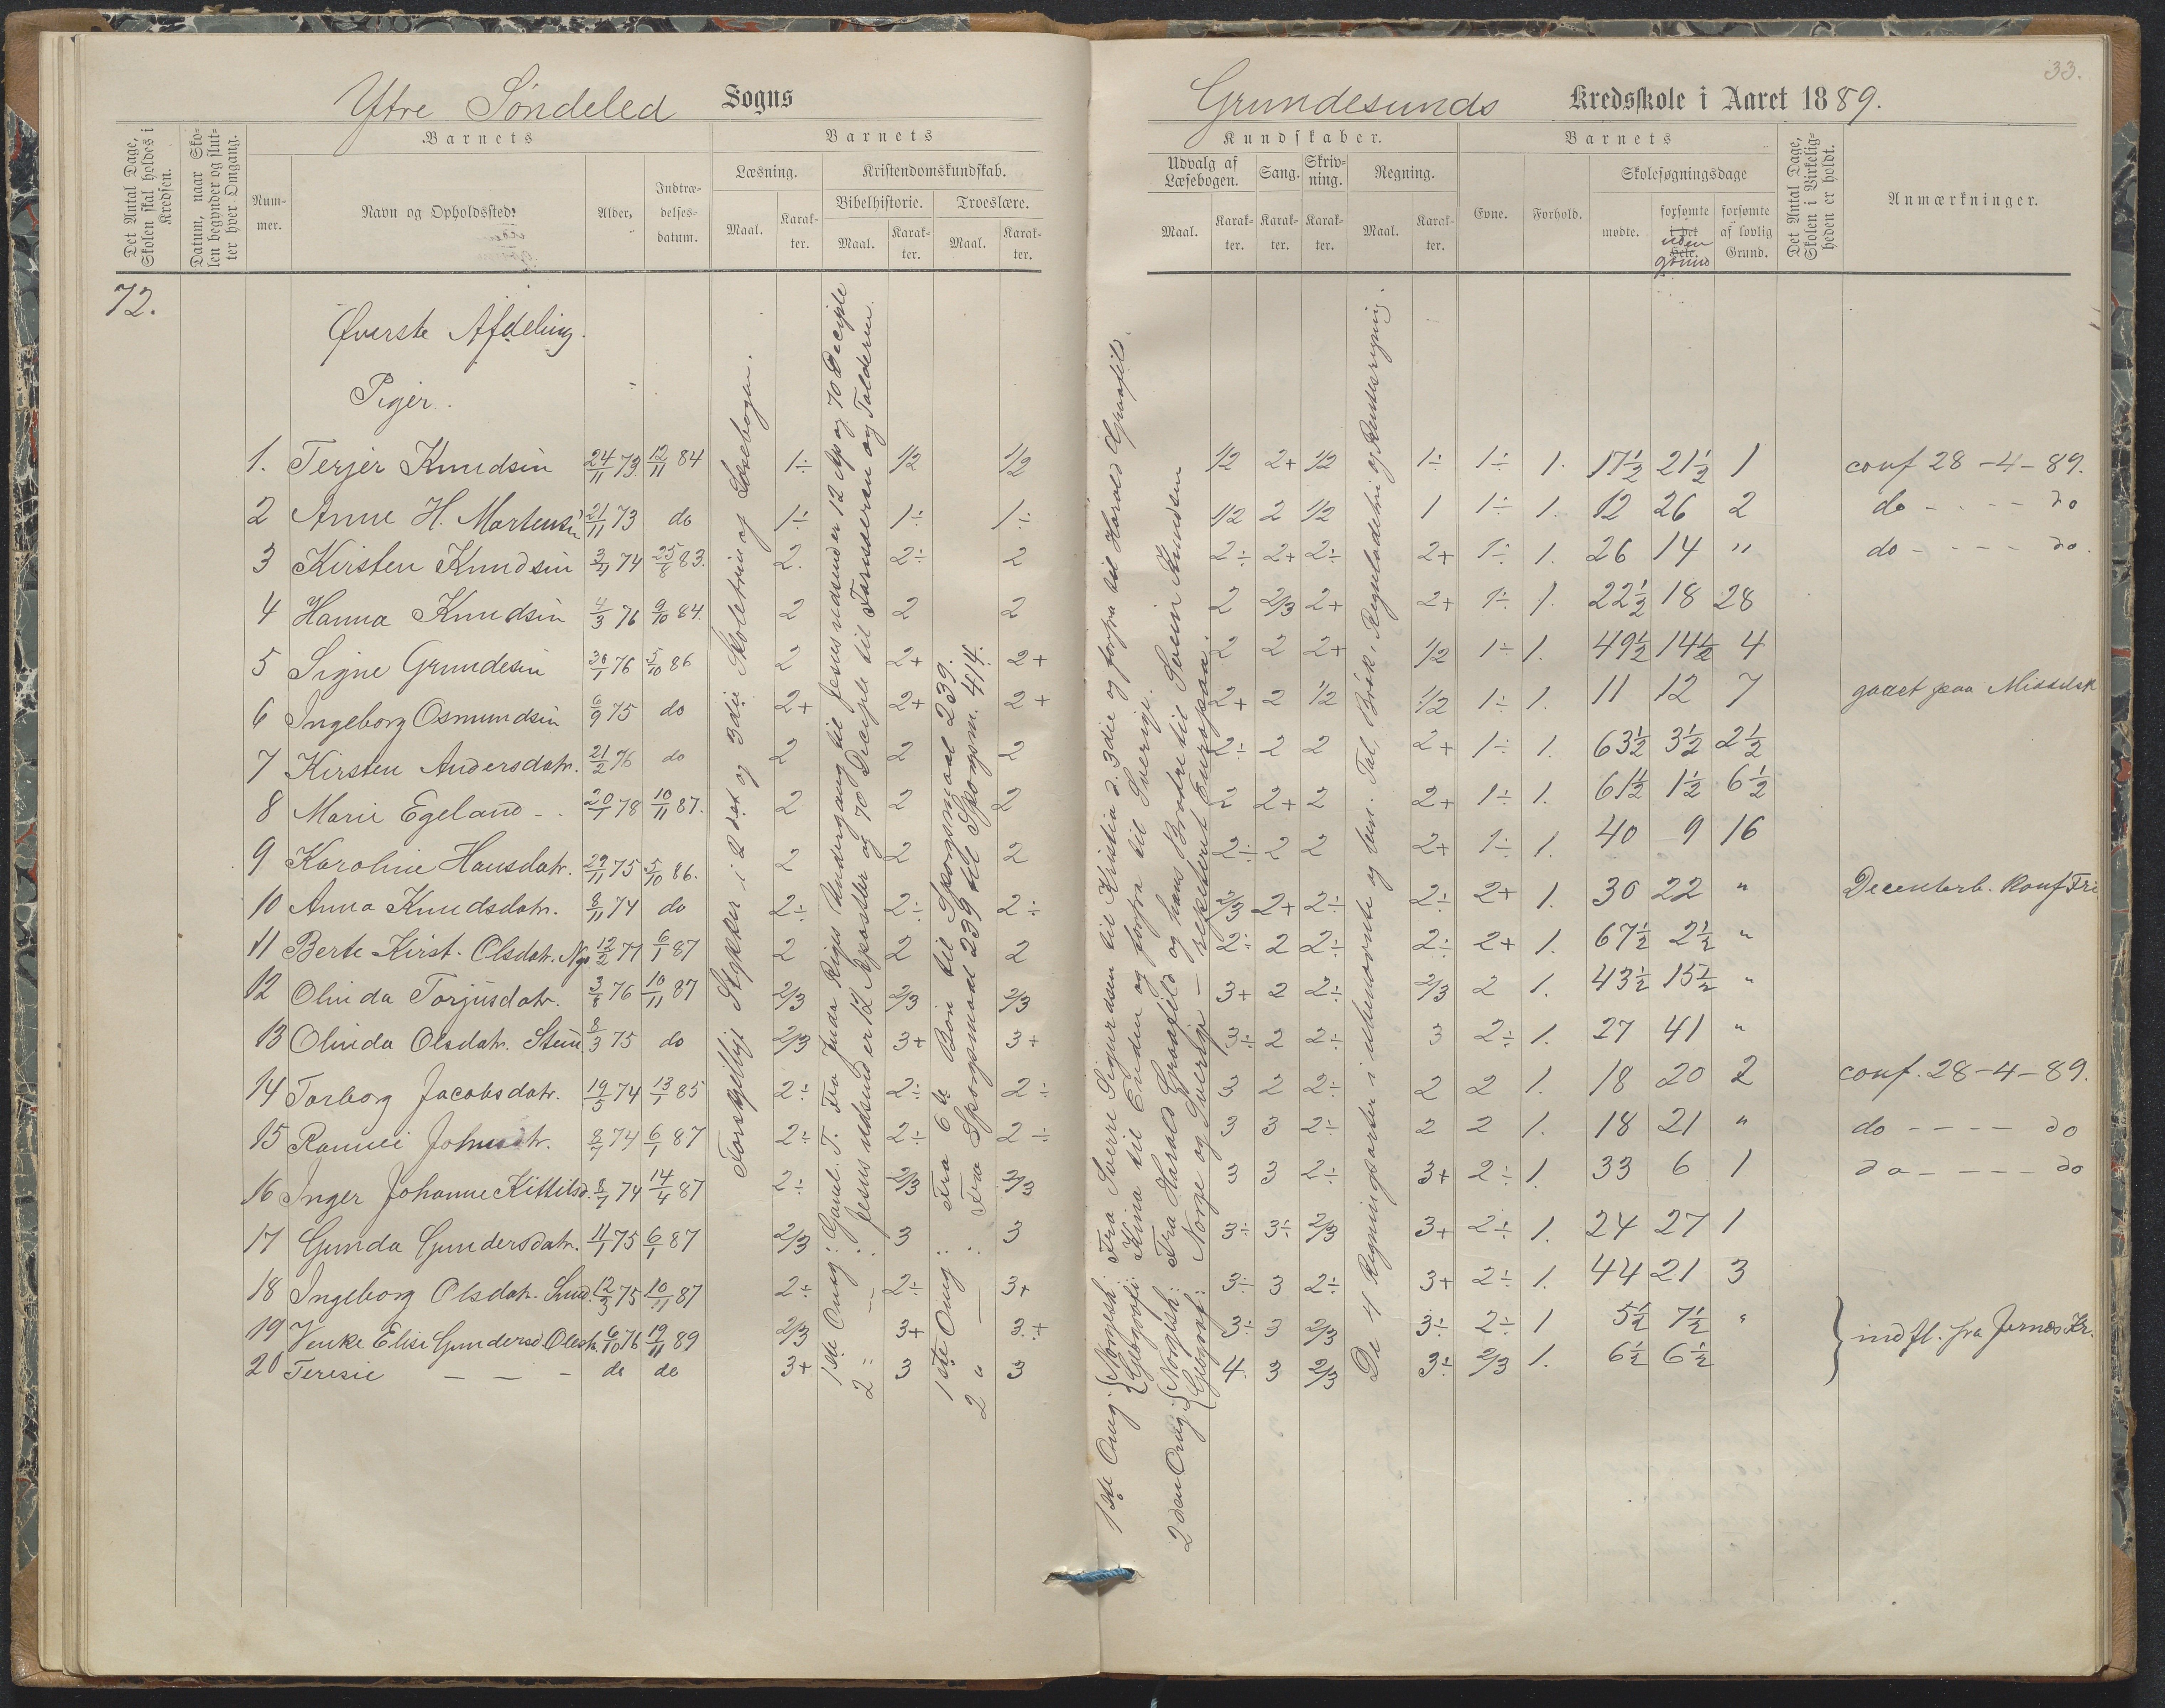 33.
Ytre Søndeled Sogns Grundesunds Kredsskole i Aaret 1889.
Det Antal Dage, Skolen skal holdes i Kredsen.
Datum, naar Skolen begynder og slutter hver Omgang.
Barnets
Nummer. Navn og Opholdssted. Alder. Indtrædelsesdatum.
Barnets
Læsning. Kristendomskundskab.
Bibelhistorie. Troeslære.
Maal. Karakter. Maal. Karakter. Maal. Karakter.
Kundskaber.
Udvalg af Læsebogen. Sang. Skrivning. Regning.
Maal. Karakter. Karakter. Karakter. Maal. Karakter.
Barnets
Evne. Forhold. Skolesøgningsdage
mødte. forsømte i det Hele. uden grund forsømte af lovlig Grund.
Det Antal Dage, Skolen i Virkeligheden er holdt.
Anmærkninger.
72.
Øverste Afdeling.
Piger.
1. Terjer Knudsin 24/11 73 12/11 84 1÷ 1/2 1/2 1/2 2+ 1/2 1÷ 1÷ 1. 17½ 21½ 1 conf 28-4-89.
2 Anne H. Martensin 21/11 73 do 1÷ 1÷ 1÷ 1/2 2 1/2 1 1÷ 1. 12 26 2 do - - - - do
3 Kirsten Knudsin 3/11 74 25/8 83. 2. 2÷ 2 2÷ 2+ 2÷ 2+ 1÷ 1. 26 14 " do - - - - do.
4 Hanna Knudsin 4/3 76 9/10 84. 2 2 2 2 2/3 2+ 2+ 1÷ 1. 22½ 18 28
5 Signe Grundesin 30/1 76 5/10 86 2 2+ 2+ 2 2 2+ 1/2 1÷ 1. 49½ 14½ 4
6 Ingeborg Osmundsin 6/9 75 do 2+ 2+ 2+ 2+ 2 1/2 1/2 1÷ 1. 11 12 7 gaaet paa Middelsk
7 Kirsten Andersdatr. 21/2 76 do 2 2 2 2÷ 2 2 2+ 1÷ 1. 63½ 3½ 2½
8 Marie Egeland - - 20/1 78 10/11 87. 2 2 2 2 2+ 2 2+ 1÷ 1. 61½ 1½ 6½
9 Karoline Hansdatr. 29/11 75 5/10 86. 2 2 2 2÷ 2 2 2+ 1÷ 1. 40 9 16
10 Anna Knudsdatr. 8/11 74 do 2÷ 2÷ 2÷ 2/3 2+ 2÷ 2÷ 2+ 1. 30 22 " Decemberb. Konf Fri
11 Berte Kirst. Olsdatr. 12/2 77 6/1 87 2 2 2 2÷ 2 2÷ 2÷ 2+ 1. 67½ 2½ "
12 Olinda Torjusdatr. 3/8 76 10/11 87 2/3 2/3 2/3 3+ 2 2÷ 2/3 2 1. 43½ 15½ "
13 Olinda Olsdatr. 8/3 75 do 2/3 3+ 3+ 3÷ 2 2÷ 3 2÷ 1. 27 41 "
14 Torborg Jacobsdatr. 19/5 74 13/1 85 2÷ 2÷ 2÷ 3 2 2÷ 2 2 1. 18 20 2 conf. 28-4-89.
15 Ranvei 8/7 74 6/1 87 2÷ 2÷ 2÷ 3 3 2÷ 2 2 1. 18 21 " do - - - - do
16 Inger Johanne Kittilsd. 8/7 74 14/4 87 2÷ 2/3 2/3 3 3 2÷ 3+ 2÷ 1. 33 6 1 do - - - - do
17 Gunda Gundersdatr. 11/1 75 6/1 87 2/3 3 3 3÷ 3÷ 2/3 3+ 2÷ 1. 24 27 1
18 Ingeborg Olsdatr. 12/3 75 10/11 87 2÷ 2÷ 3+ 3÷ 3 2÷ 3+ 2÷ 1. 44 21 3
19 Venke Elise Gundersd 6/10 76 19/11 89 2/3 3+ 3+ 3÷ 3 2/3 3÷ 2÷ 1 5½ 7½ " indfl. fra Jernæs Kr.
20 Teresie - - - do do 3+ 3 3 4 3 2/3 3÷ 2/3 1. 6½ 6½
Forskjellige Stykker i 2det og 3die Skoletrin og Læsebogen.
1ste Omg: Gaml. T. Fra Juda Riges Undergang til Jesus udsender 12 Ap og 70 Diciple
2 " - : Jesus udsender 12 Apostler og 70 Diciple til Farisæeren og Tolderen.
1ste Omg: Fra 6te Bøn til Spørgsmaal 239.
2 " - : Fra Spørgsmaal 239 til Spørgsm. 414.
1ste Omg. {Norgesh: Fra Sverre Sigurdsen til Kristia d. 3die og forfra til Harald Graafeld.
{Geografi: Kina til Enden og forfra til Sverige.
2den Omg. {Norgesh: Fra Harald Graafeld og hans Brødre til Svein Knudsen
{Geograf: Norge og Sverige - repeteret Europaa.
De 4 Regningsarter i ubenævnte og ben. Tal, Brøk, Reguladetri og Rentesregning.